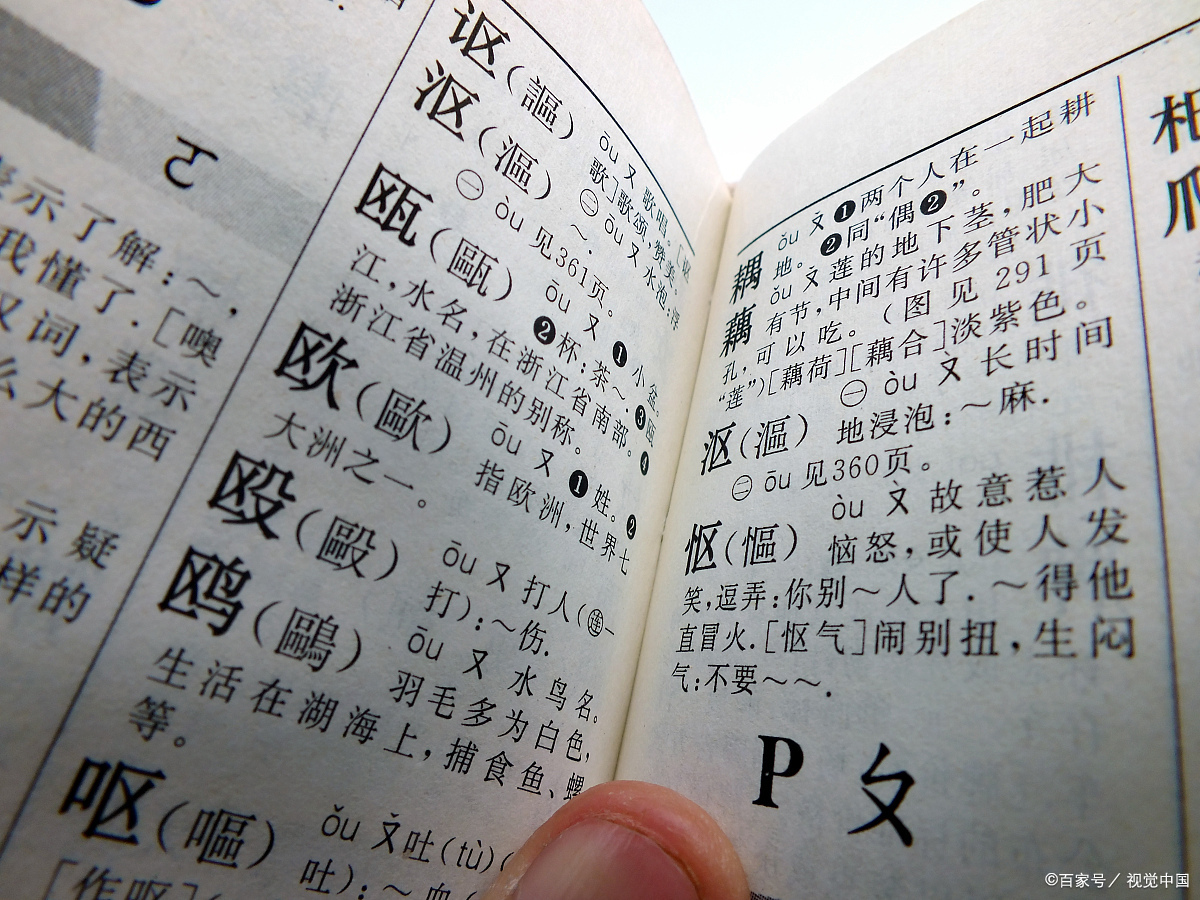 ㄛ
表示了解:～,
我懂了.[噢
叹词,表示
么大的西
示疑
样的
讴(謳) ōu ㄡ 歌唱。[讴
歌]歌颂,赞美。
沤(漚) ㊀ ōu ㄡ 水泡:浮
～.
㊁ òu 见361页。
瓯(甌) ōu ㄡ ❶小盆。
❷杯:茶～.❸瓯
江,水名,在浙江省南部。❹
浙江省温州的别称。
欧(歐) ōu ㄡ ❶姓。❷
指欧洲,世界七
大洲之一。
殴(毆) ōu ㄡ 打人(㊀连—
打):～伤.
鸥(鷗) ōu ㄡ 水鸟名。
羽毛多为白色,
生活在湖海上,捕食鱼、螺
等。
呕(嘔) ǒu ㄡˇ吐(tù)(
吐):～血
[作呕]
耦 ǒu ㄡˇ ❶两个人在一起耕
地。❷同“偶❷”。
藕 ǒu ㄡˇ 莲的地下茎,肥大
有节,中间有许多管状小
孔,可以吃。(图见 291 页
“莲”)[藕荷][藕合]淡紫色。
沤(漚) ㊀ òu ㄡˋ 长时间
地浸泡:～麻.
㊁ ōu 见360页。
怄(慪) òu ㄡˋ 故意惹人
恼怒,或使人发
笑,逗弄:你别～人了.～得他
直冒火.[怄气]闹别扭,生闷
气:不要～～.
P ㄆ
©百家号／视觉中国